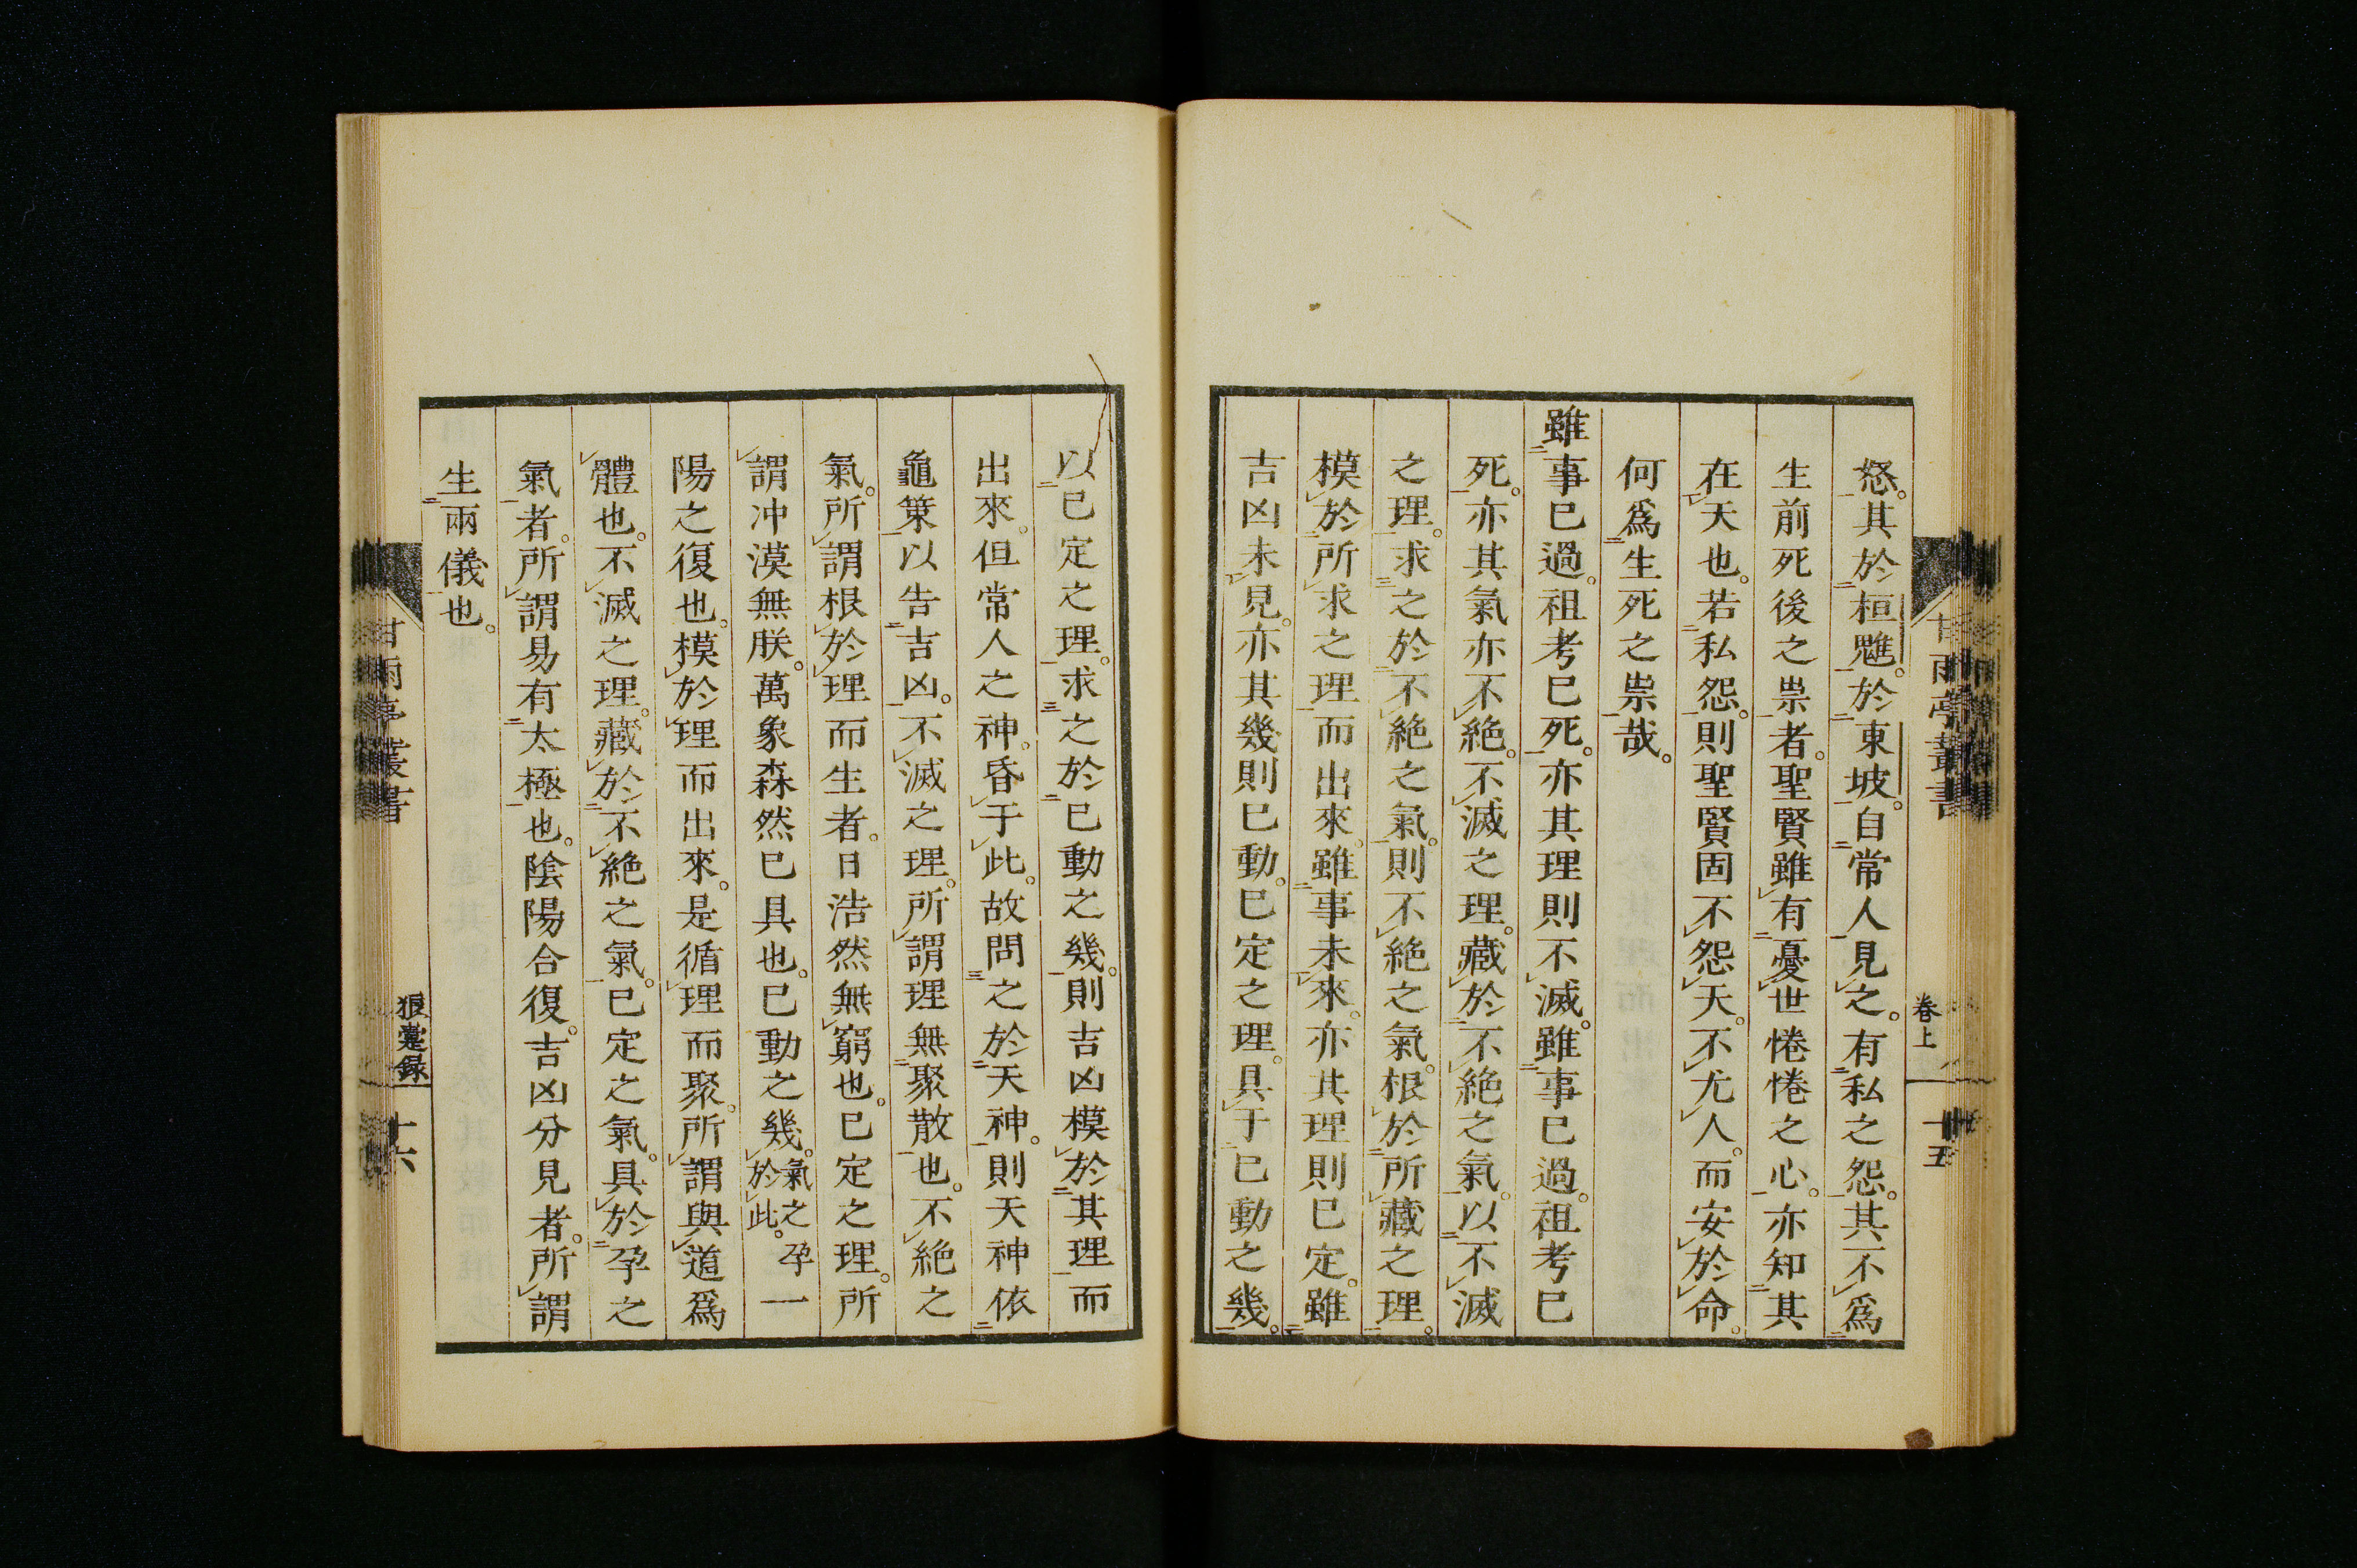 怒。其於桓魋。於東坡。自常人見之。有私之怨。其不爲
生前死後之祟者。聖賢雖有憂世惓惓之心。亦知其
在天也。若私怨。則聖賢固不怨天。不尤人。而安於命。
何爲生死之祟哉。
雖事已過。祖考已死。亦其理則不滅。雖事已過。祖考已
死。亦其氣亦不絶。不滅之理。藏於不絶之氣。以不滅
之理。求之於不絶之氣。則不絶之氣。根於所藏之理。
模於所求之理而出來。雖事未來。亦其理則已定。雖
吉凶未見。亦其幾則已動。已定之理。具于已動之幾。
甘雨亭叢書
卷上
十五
以已定之理。求之於已動之幾。則吉凶模於其理而
出來。但常人之神。昏于此。故問之於天神。則天神依
龜筴以告吉凶。不滅之理。所謂理無聚散也。不絶之
氣。所謂根於理而生者。日浩然無窮也。已定之理。所
謂冲漠無朕。萬象森然已具也。已動之幾。氣之孕於此。一
陽之復也。模於理而出來。是循理而聚。所謂與道爲
體也。不滅之理。藏於不絶之氣。已定之氣。具於孕之
氣者。所謂易有太極也。陰陽合復。吉凶分見者。所謂
生兩儀也。
甘雨亭叢書
狼疐録
十六